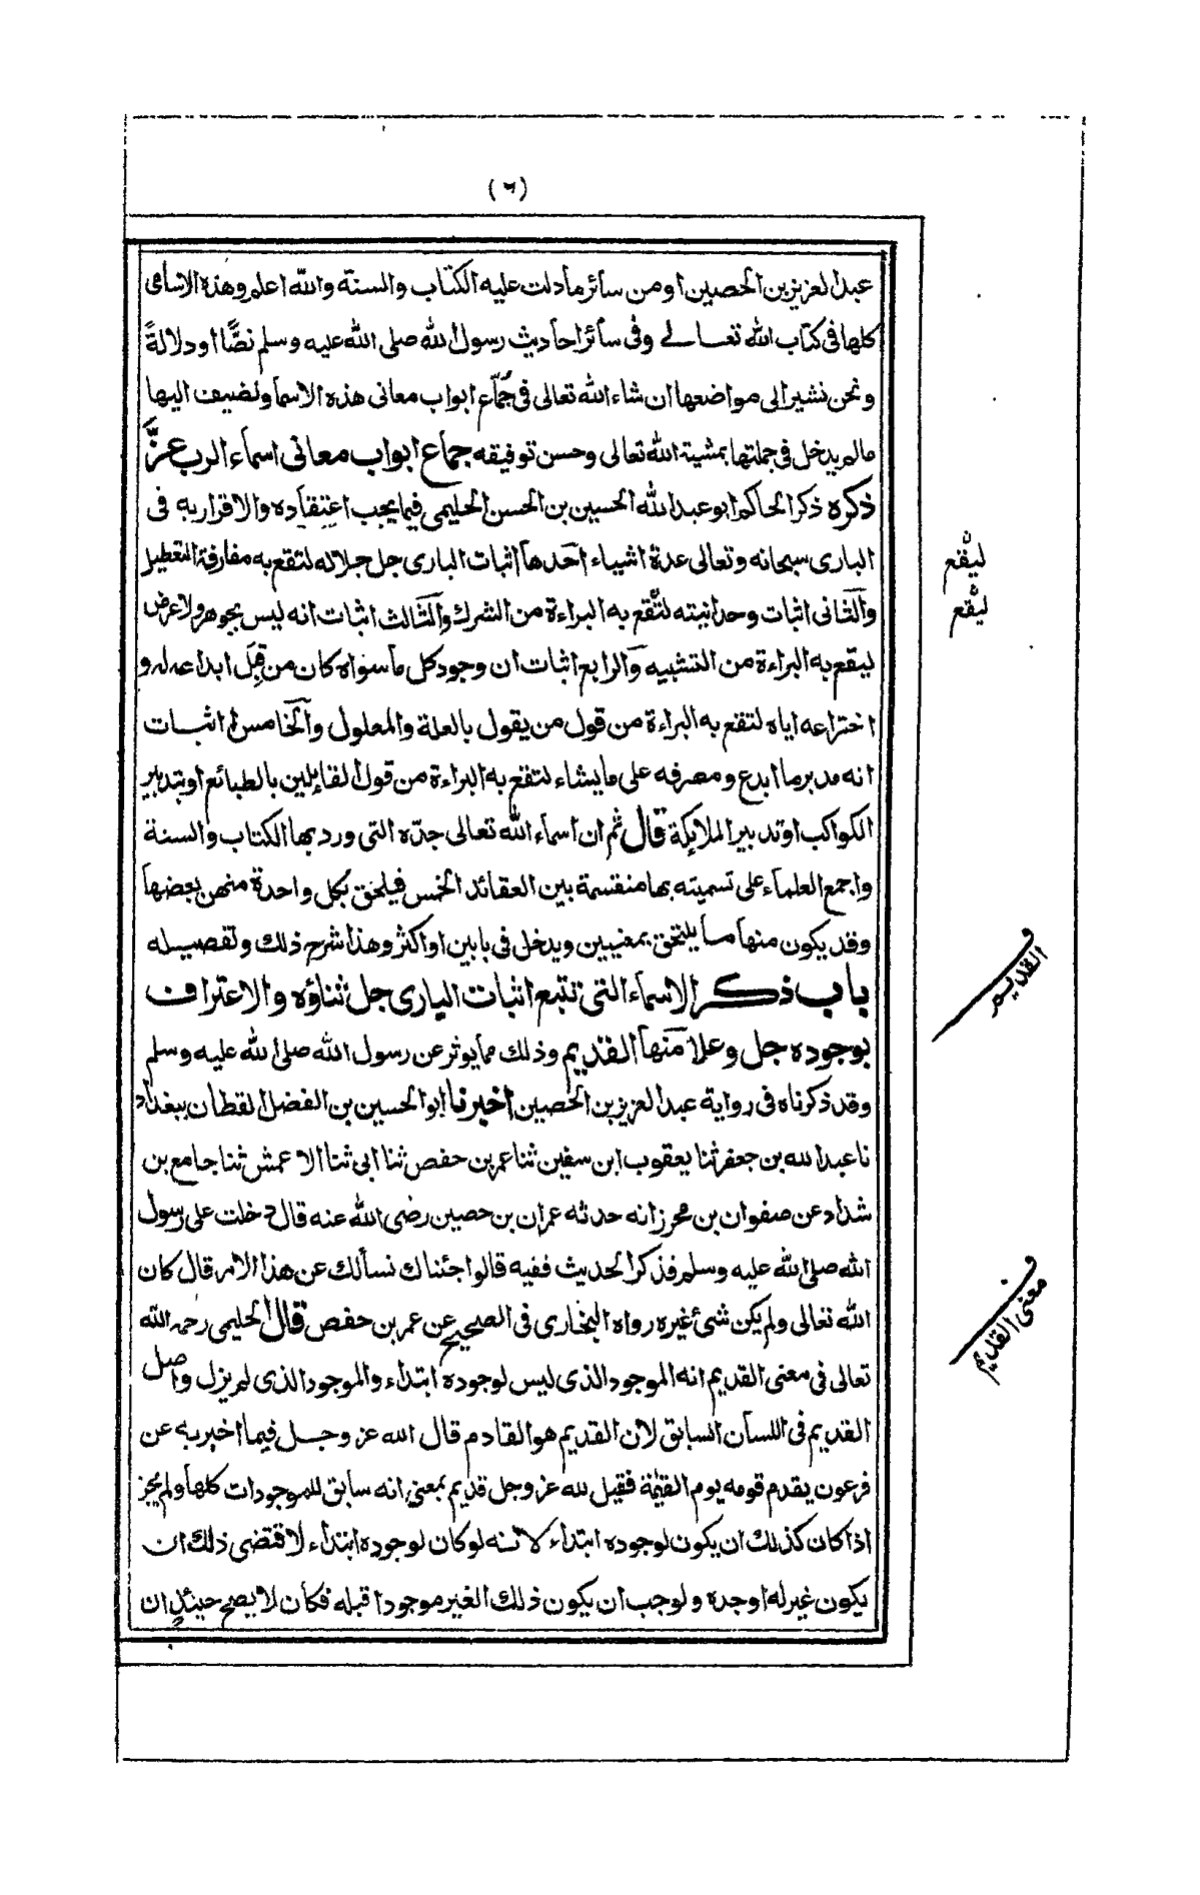 (٦)
عبد العزيز بن الحصين او من سائر ما دلت عليه الكتاب والسنة والله اعلم وهذه الاسامى
كلها فى كتاب الله تعالى وفى سائر احاديث رسول الله صلى الله عليه وسلم نصًّا او دلالةً
ونحن نشير الى مواضعها ان شاء الله تعالى فى جُمّاع ابواب معانى هذه الاسما ونضيف اليها
مالم يدخل فى جملتها بمشية الله تعالى وحسن توفيقه جماع ابواب معانى اسماء الرب عزَّ
ذكره ذكر الحاكم ابو عبد الله الحسين بن الحسن الحليمى فيما يجب اعتقاده والاقرار به فى
البارى سبحانه وتعالى عدة اشياء احدها اثبات البارى جل جلاله لتقع به مفارقة التعطيل
والثانى اثبات وحدانيته لتقع به البراءة من الشرك والثالث اثبات انه ليس بجوهر ولا عرض
ليقع به البراءة من التشبيه والرابع اثبات ان وجود كل ما سواه كان من قِبَل ابداعه له و
اختراعه اياه لتقع به البراءة من قول من يقول بالعلة والمعلول والخامس اثبات
انه مدبر ما ابدع ومصرفه على ما يشاء لتقع به البراءة من قول القايلين بالطبائع او بتدبير
الكواكب او تدبير الملايكة قال ثم ان اسماء الله تعالى جدّه التى ورد بها الكتاب والسنة
واجمع العلماء على تسميته بها منقسمة بين العقائد الخمس فيلحق بكل واحدة منهن بعضها
وقد يكون منها ما يلتحق بمعنيين ويدخل فى بابين او اكثر وهذا شرح ذلك وتفصيله
باب ذكر الاسماء التى تتبع اثبات البارى جل ثناؤه والاعتراف
بوجوده جل وعلا منها القديم وذلك مما يوثر عن رسول الله صلى الله عليه وسلم
وقد ذكرناه فى رواية عبد العزيز بن الحصين اخبرنا ابو الحسين بن الفضل القطان ببغداد
نا عبد الله بن جعفر ثنا يعقوب ابن سفين ثنا عمر بن حفص ثنا ابى ثنا الاعمش ثنا جامع بن
شداد عن صفوان بن محرز انه حدثه عمران بن حصين رضى الله عنه قال دخلت على رسول
الله صلى الله عليه وسلم فذكر الحديث ففيه قالوا جئناك نسألك عن هذا الامر قال كان
الله تعالى ولم يكن شئ غيره رواه البخارى فى الصحيح عن عمر بن حفص قال الحليمى رحمه الله
تعالى فى معنى القديم انه الموجود الذى ليس لوجوده ابتداء والموجود الذى لم يزل واصل
القديم فى اللسان السابق لان القديم هو القادم قال الله عز وجل فيما اخبر به عن
فرعون يقدم قومه يوم القيٰمة فقيل لله عز وجل قديم بمعنى انه سابق للموجودات كلها ولم يجز
اذا كان كذلك ان يكون لوجوده ابتداء لانه لو كان لوجوده ابتداء لاقتضى ذلك ان
يكون غير له اوجده ولوجب ان يكون ذلك الغير موجودا قبله فكان لا يصح حينئذٍ ان
ليقع
ليقع
القديم
معنى القديم